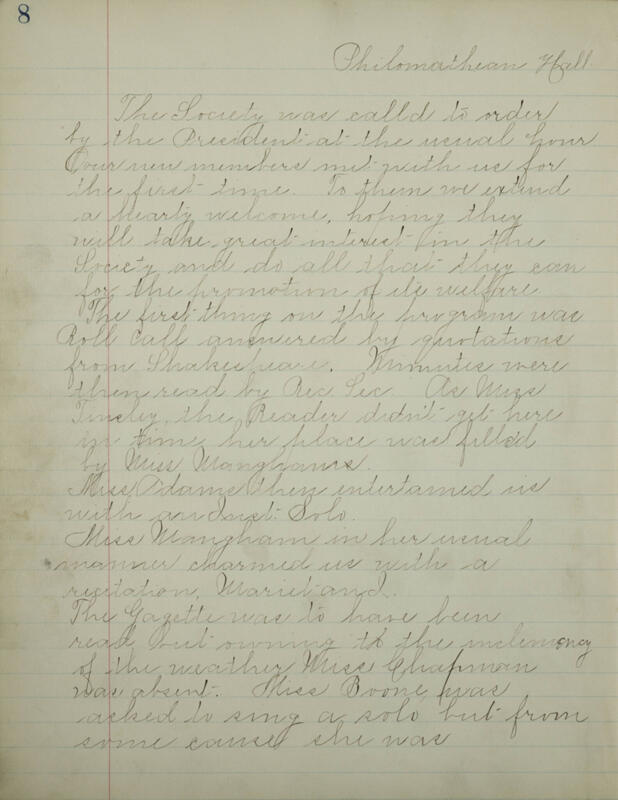 8
Philomathean Hall
The Society was calld to order
by the President at the usual hour
Our new members met with us for
the first time. To them we extend
a hearty welcome, hoping they
will take great interest in the
Society and do all that they can
for the promotion of its welfare
The first thing on the program was
Roll call answered by quotations
from Shakespeare. Minutes were
then read by Rec. Sec. As Miss
Tinsley, the Reader didn't get here
in time her place was filled
by Miss
Miss Adams then entertained us
with an Inst. Solo.
Miss Mangham in her usual
manner charmed us with a
recitation,
The Gazette was to have been
read but owning to the inclemency
of the weather Miss Chapman
was absent. Miss Boone was
asked to sing a solo but from
some cause she was